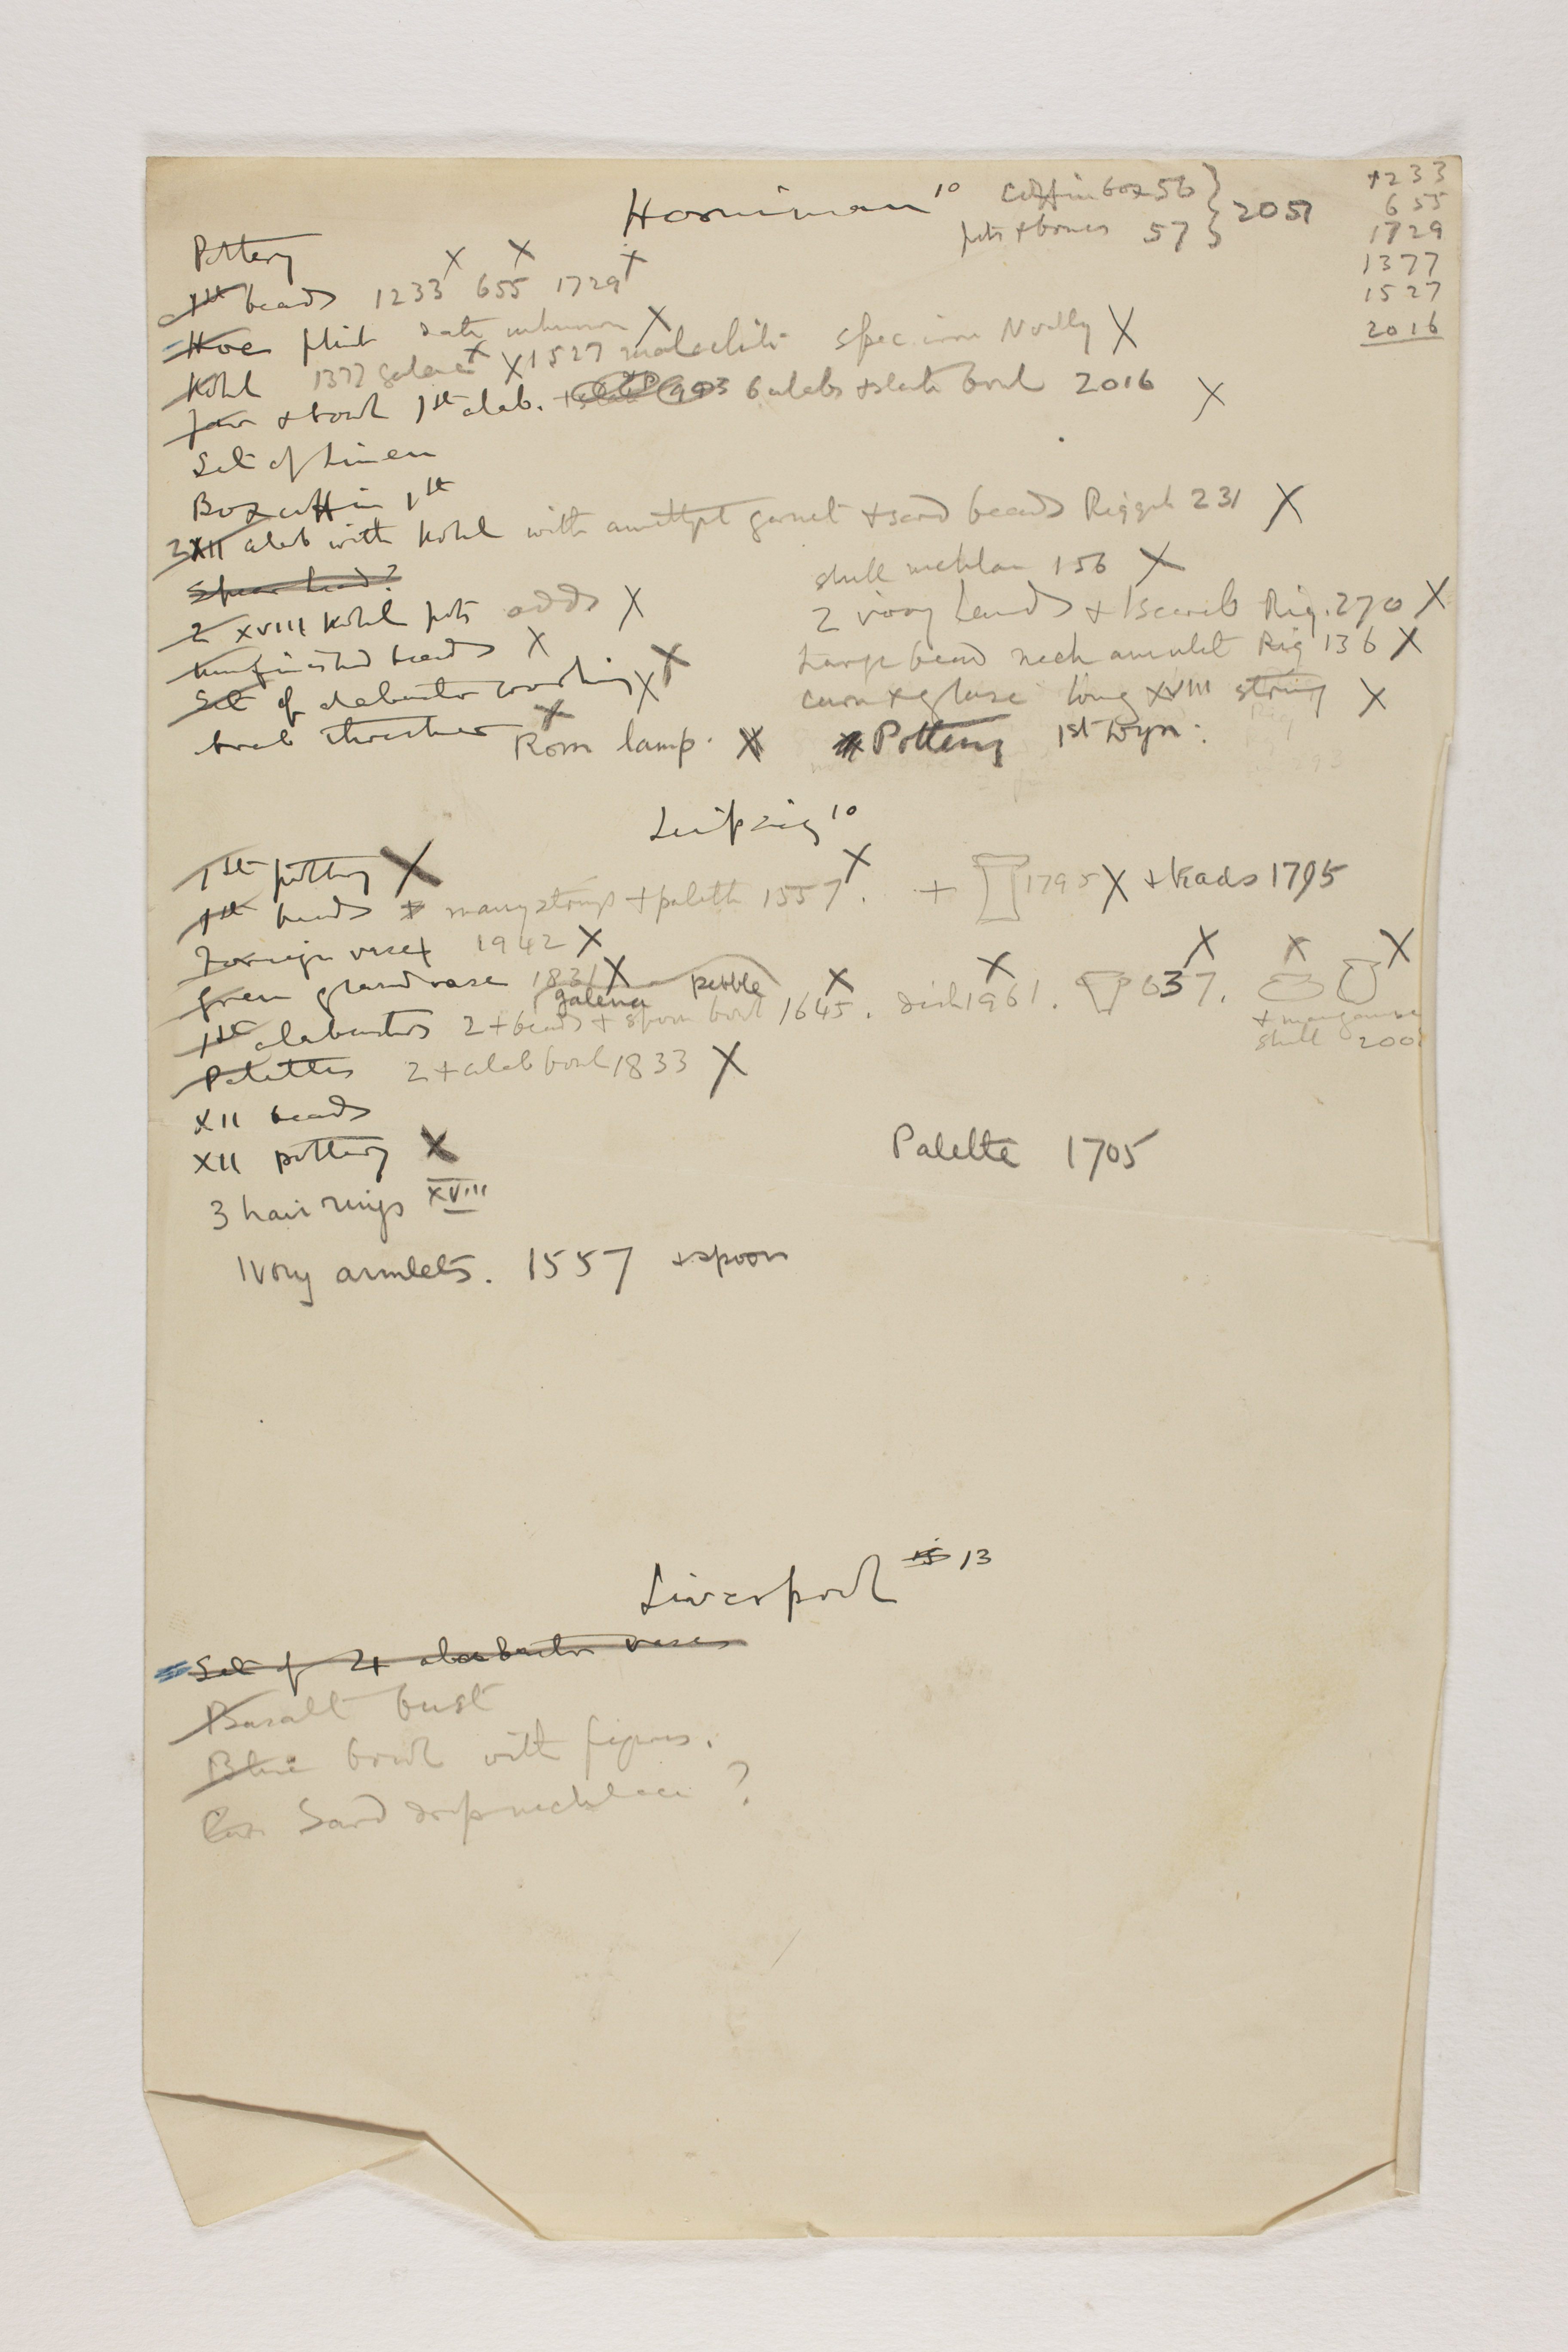 Horniman 10
coffin box 56 } 2051
pots + bones 57 }
1233
655
1729
1377
1527
2016
Pottery
1st beads 1233 X 655 X 1729 X
Hoe flint date unknown X
Kohl 1377 galena X X 1527 malachite specimen Nodly X
Jar + bowl 1st alab. 6 alabs + slate bowl 2016 X
Set of linen
Box coffin 1st
XII alab with kohl with amethyst garnet + sard beads Riqqeh 231 X
Spear head?
2 XVIII kohl pots odds X
unfinished beads X
Set of alabaster working X X
thresher X Rom lamp. X
shell necklace 156 X
2 ivory hands + 1 scarab Riq. 270 X
Large bead neck amulet Riq 136 X
carn + glass long XVIII string X
Pottery 1st Dyn:
Leipzig 10
1st pottery X
1st beads many strings + palette 1557 X. + 1795 X + beads 1795
Foreign vase 1942 X
Green glazed vase 1831 X
galena pebble
1st alabasters 2 + beads + spoon bowl 1645 X. dish 1961 X. 637 X. X X
+ manganese
shell 200
Palettes 2 + alab bowl 1833 X
XII beads
XII pottery X
Palette 1705
3 hair rings XVIII
Ivory armlets. 1557 + spoon
Liverpool 15 13
Set of 24 alabaster vases
Basalt bust
Blue bowl with figures.
Sard drop necklace ?